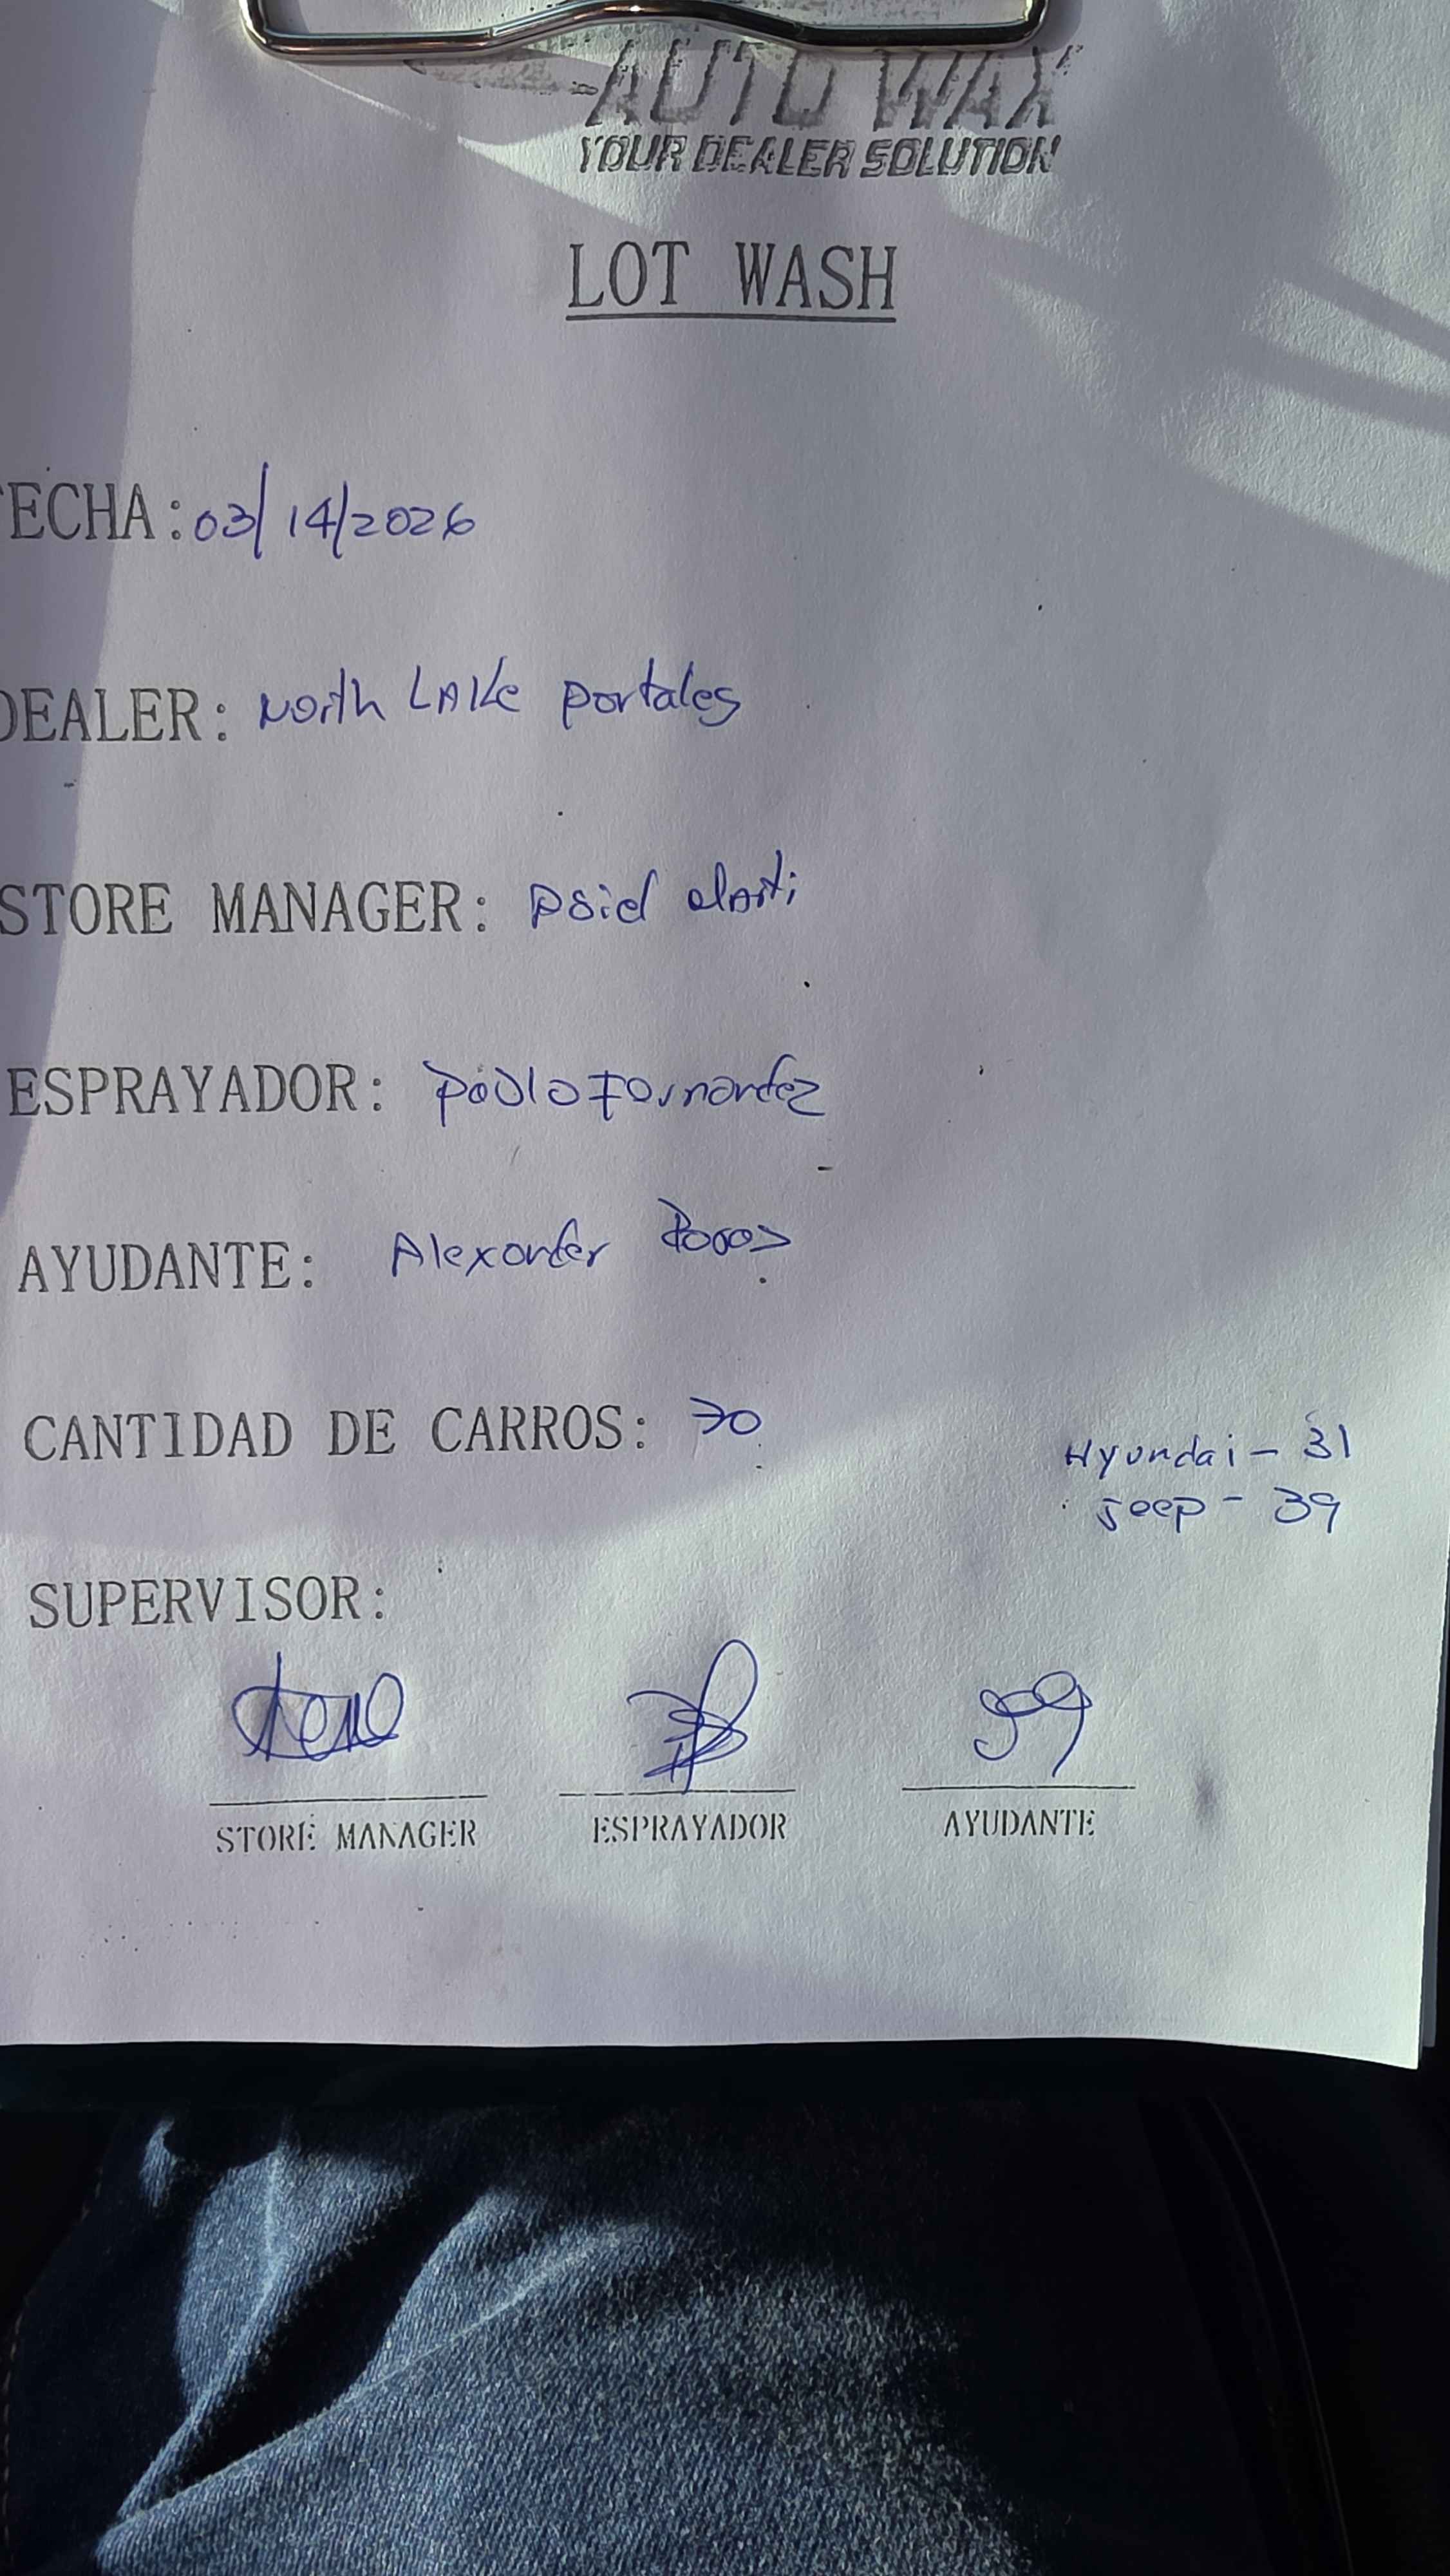 AUTO WAX
YOUR DEALER SOLUTION
LOT WASH
FECHA: 03/14/2026
DEALER: North LAKe portales
STORE MANAGER:
ESPRAYADOR: Pablo Fernandez
AYUDANTE: Alexander
CANTIDAD DE CARROS: 70
Hyundai - 31
Jeep - 39
SUPERVISOR:
STORE MANAGER ESPRAYADOR AYUDANTE